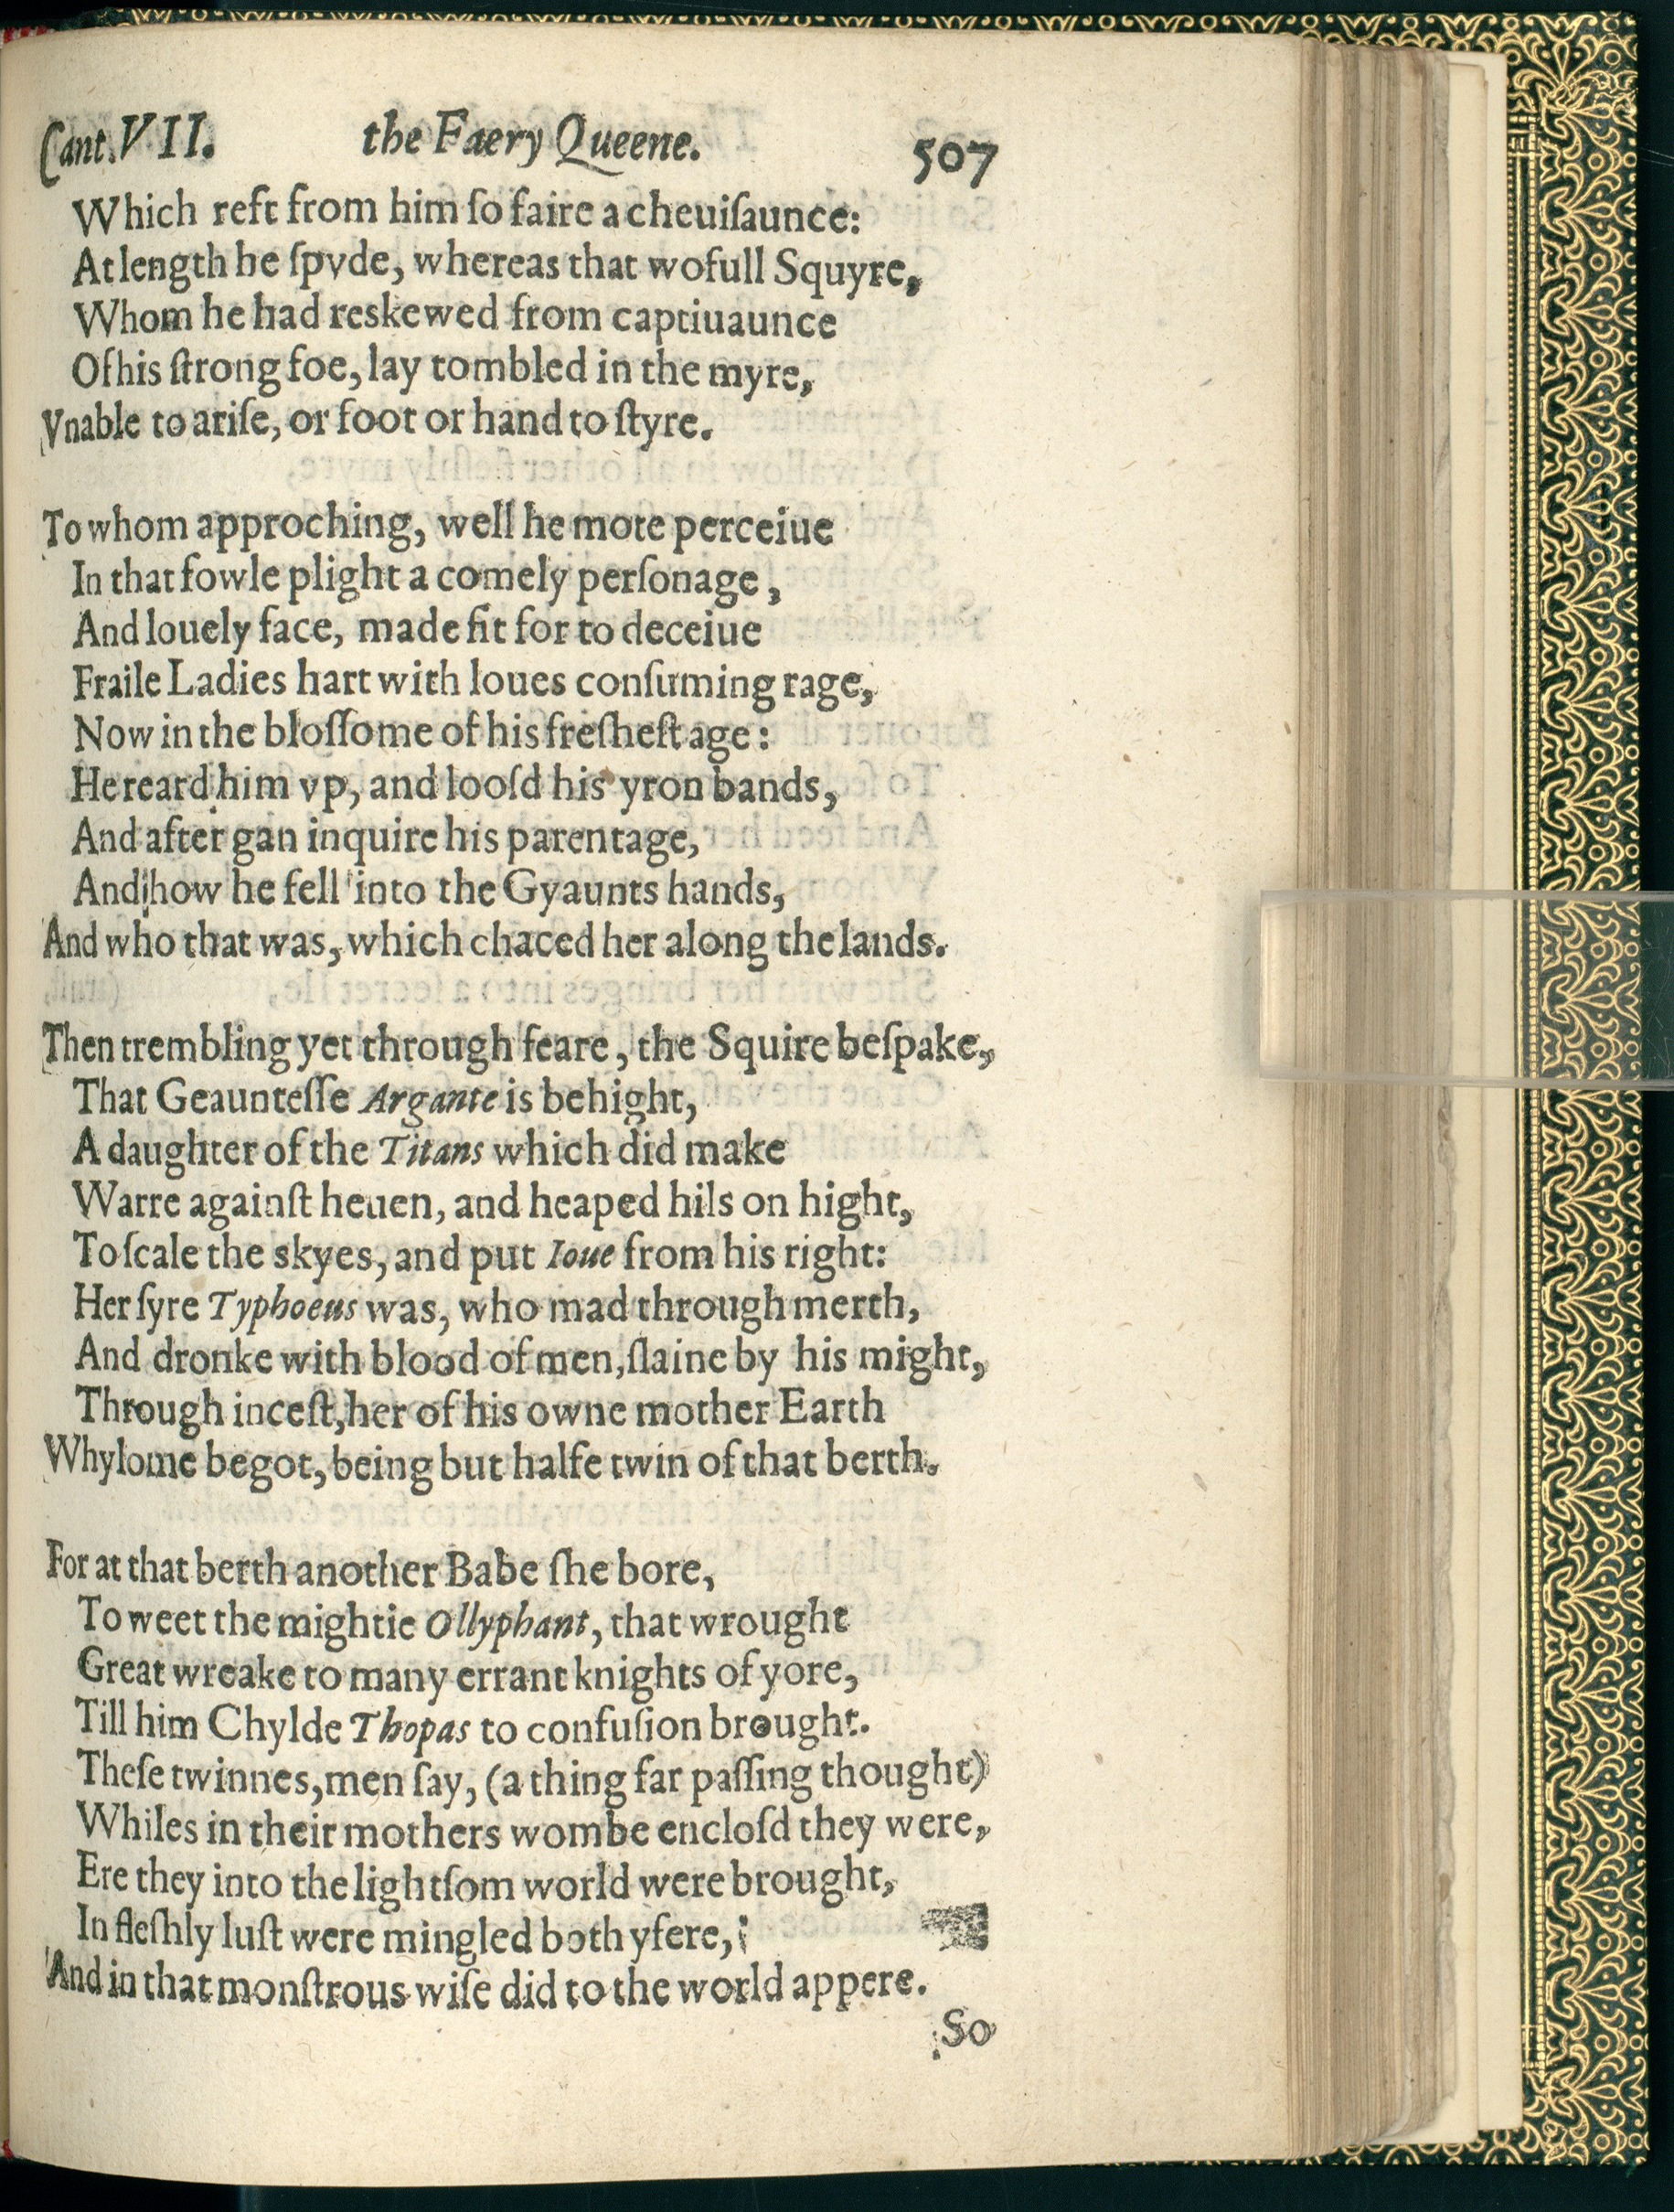 Cant. VII. the Faery Queene. 507
Which reft from him ſo faire a cheuiſaunce:
At length he ſpyde, whereas that wofull Squyre,
Whom he had reskewed from captiuaunce
Of his ſtrong foe, lay tombled in the myre,
Vnable to ariſe, or foot or hand to ſtyre.
To whom approching, well he mote perceiue
In that fowle plight a comely perſonage,
And louely face, made fit for to deceiue
Fraile Ladies hart with loues conſuming rage,
Now in the bloſſome of his freſheſt age:
He reard him vp, and looſd his yron bands,
And after gan inquire his parentage,
And how he fell into the Gyaunts hands,
And who that was, which chaced her along the lands.
Then trembling yet through feare, the Squire beſpake,
That Geaunteſſe Argante is behight,
A daughter of the Titans which did make
Warre againſt heuen, and heaped hils on hight,
To ſcale the skyes, and put Ioue from his right:
Her ſyre Typhoeus was, who mad through merth,
And dronke with blood of men, ſlaine by his might,
Through inceſt, her of his owne mother Earth
Whylome begot, being but halfe twin of that berth.
For at that berth another Babe ſhe bore,
To weet the mightie Ollyphant, that wrought
Great wreake to many errant knights of yore,
Till him Chylde Thopas to confuſion brought.
Theſe twinnes, men ſay, (a thing far paſſing thought)
Whiles in their mothers wombe encloſd they were,
Ere they into the lightſom world were brought,
In fleſhly luſt were mingled both yfere,
And in that monſtrous wiſe did to the world appere.
So